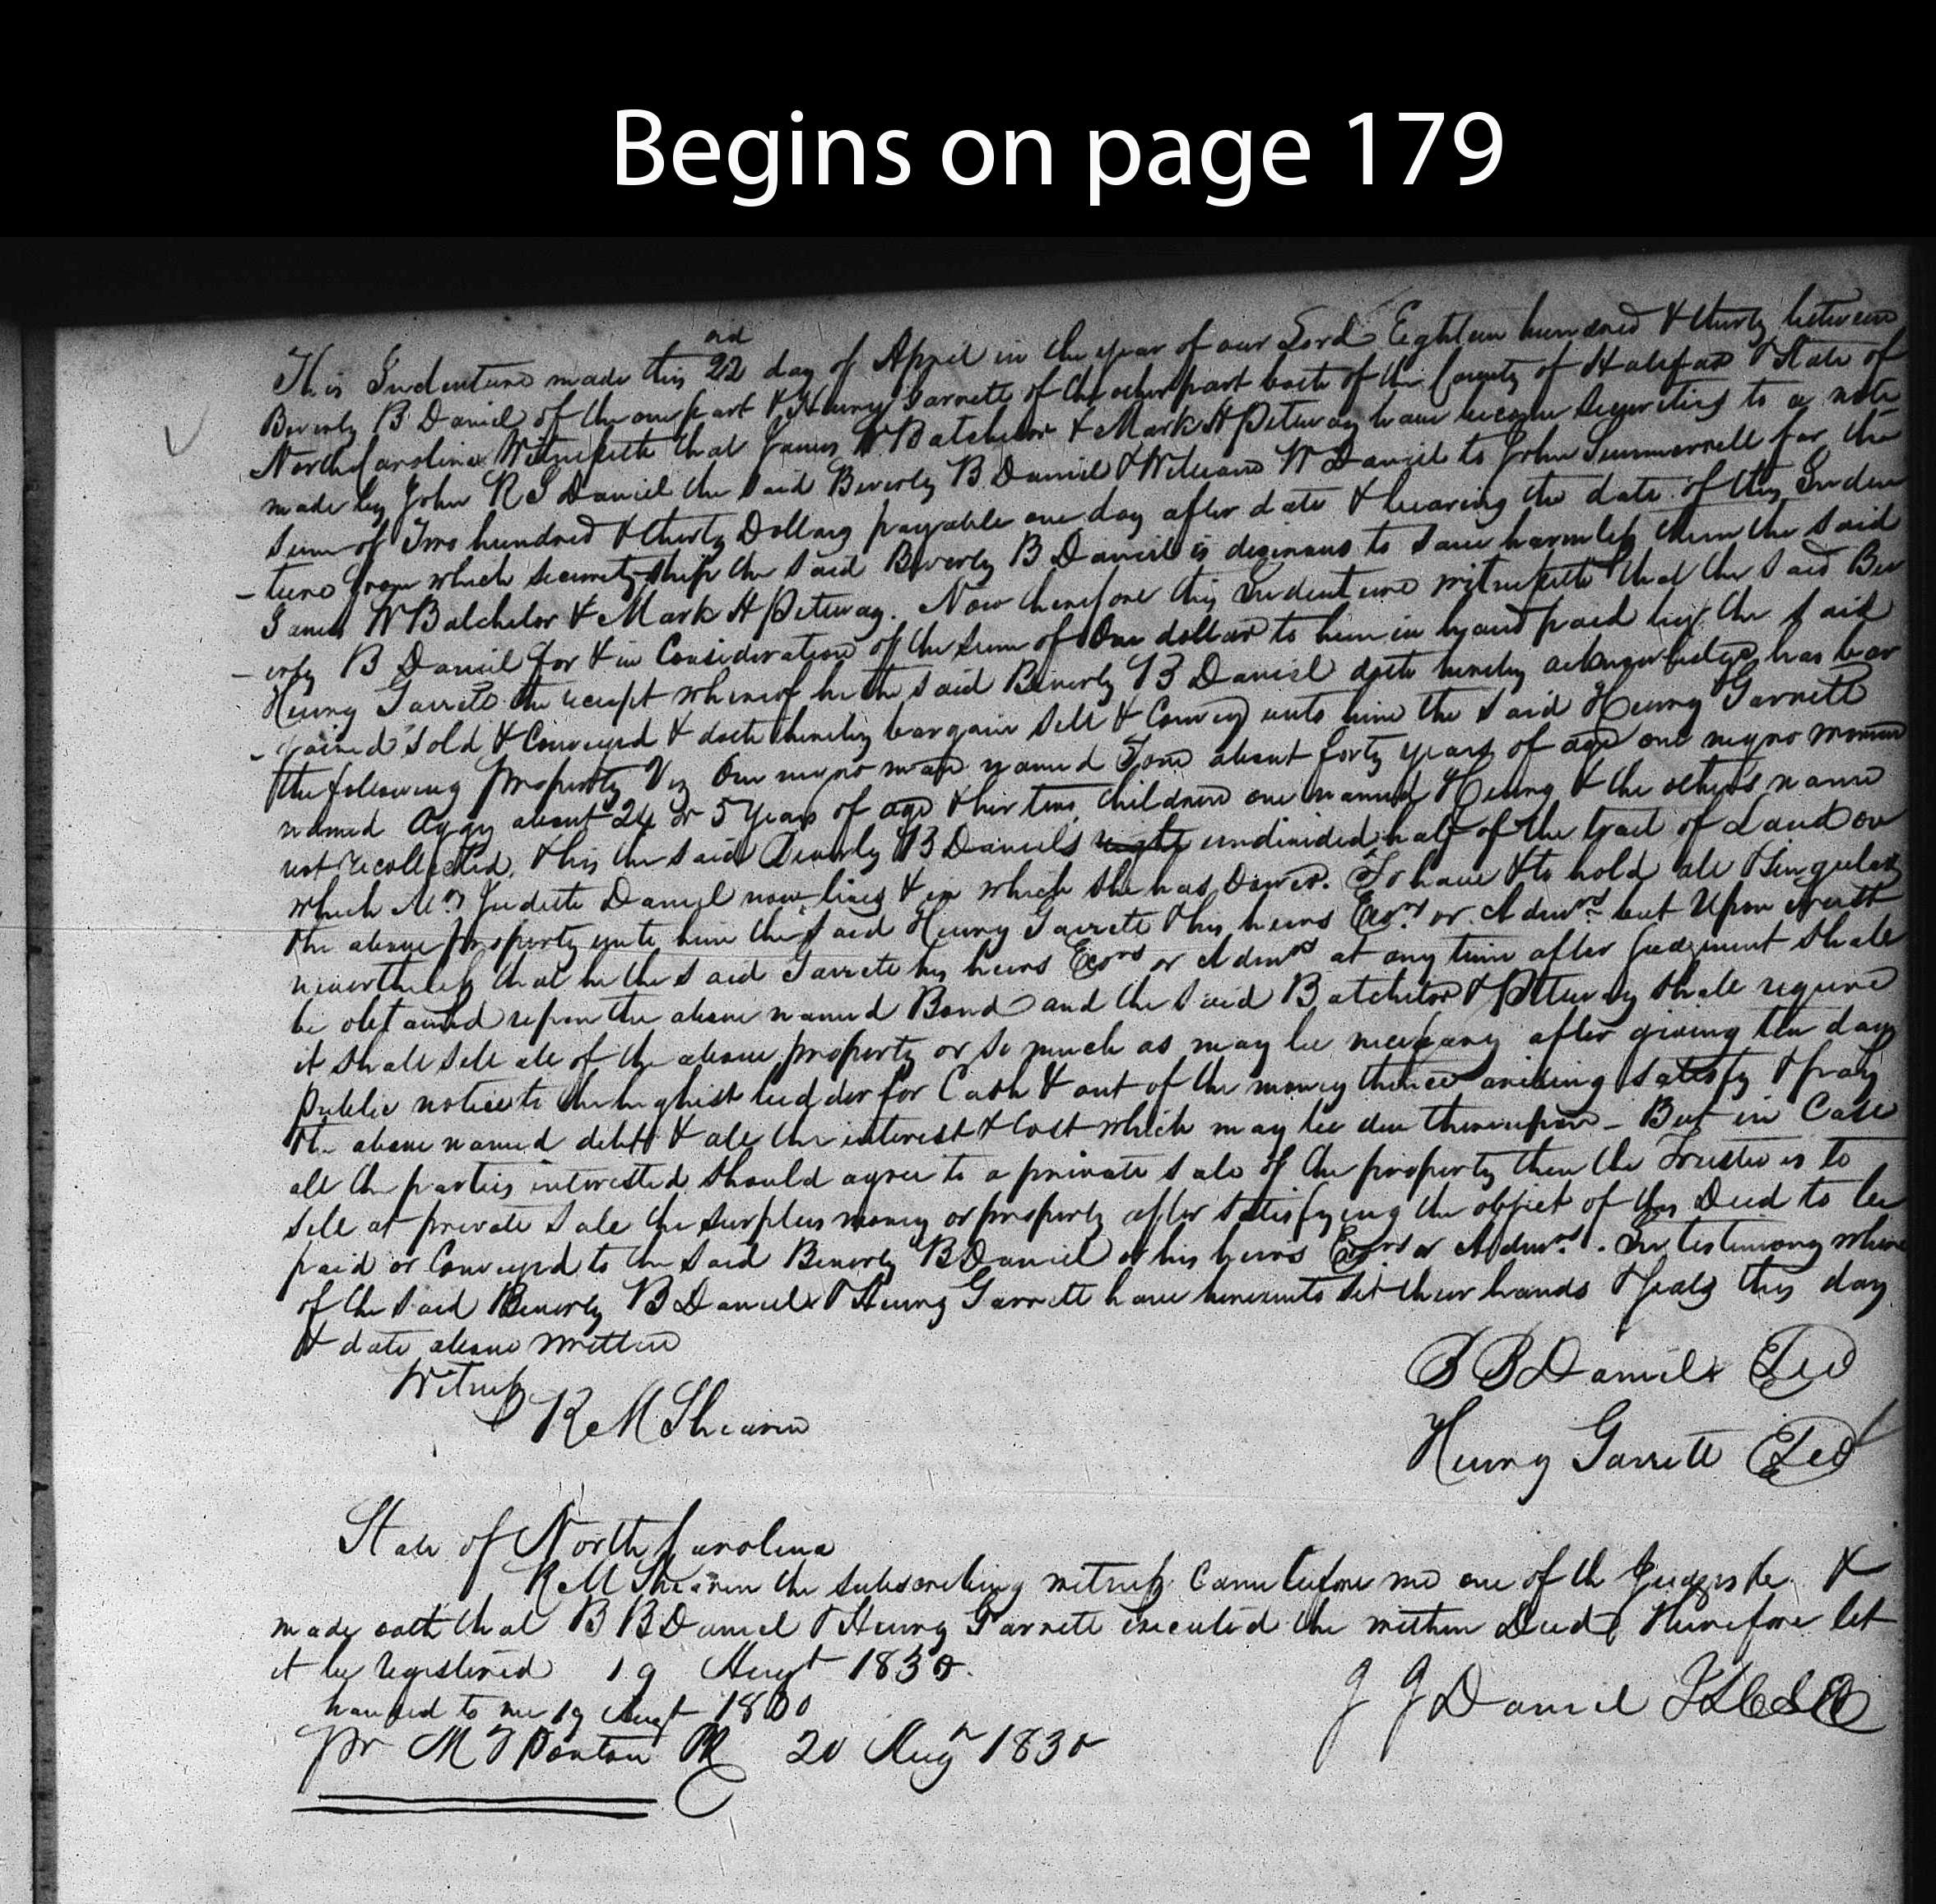 Begins on page 179
This Indenture made this 22nd day of April in the year of our Lord Eighteen hundred & thirty between
Beverly B Daniel of the one part & Henry Garrett of the other part both of the County of Halifax & State of
North Carolina Witnesseth that James W Batchelor & Mark H Petway have become securities to a note
made by John R S Daniel the said Beverly B Daniel & William W Daniel to John Summerrell for the
sum of Two hundred & thirty Dollars payable one day after date & bearing the date of this Inden
-ture from which security ship the said Beverly B Daniel is desirous to save harmless them the said
James W Batchelor & Mark H Petway. Now therefore this Indenture witnesseth that the said Bev
-erly B Daniel for & in Consideration of the sum of One dollar to him in hand paid by the said
Henry Garrett the receipt whereof he the said Beverly B Daniel doth hereby acknowledge has bar
-gained sold & Conveyed & doth hereby bargain sell & Convey unto him the said Henry Garrett
the following property Viz One negro man named Tom about forty years of age one negro woman
named Aggy about 24 or 5 Years of age & her two children one named Henry & the others name
not recollected. & his the said Beverly B Daniels right undivided half of the tract of Land on
which Mrs Judith Daniel now lives & in which she has Dower. To have & to hold all & singular
the above property unto him the said Henry Garrett & his heirs Exors or Admrs but Upon trust
nevertheless that he the said Garrett his heirs Exors or Admrs at any time after judgment shall
be obtained upon the above named Bond and the said Batchelor & Petway shall require
it shall sell all of the above property or so much as may be necessary after giving ten days
public notice to the highest bidder for Cash & out of the money thence arising satisfy & pay
the above named debt & all the interest & Cost which may be due thereupon - But in Case
all the parties interested should agree to a private sale of the property then the Trustee is to
sell at private sale the surplus money or property after satisfying the object of this Deed to be
paid or Conveyed to the said Beverly B Daniel or his heirs Exors or Admrs. In testimony where
of the said Beverly B Daniel & Henry Garrett have hereunto set their hands & seals this day
& date above written
Witness
R M Shearin
B B Daniel Seal
Henry Garrett Seal
State of North Carolina
R M Shearin the subscribing witness came before me one of the Judges &c &
made oath that B B Daniel & Henry Garrett executed the within Deed Therefore let
it be registered 19 Augt 1830.
J J Daniel
handed to me 19 Augt 1830
pr M T Ponton PR 20 Aug 1830